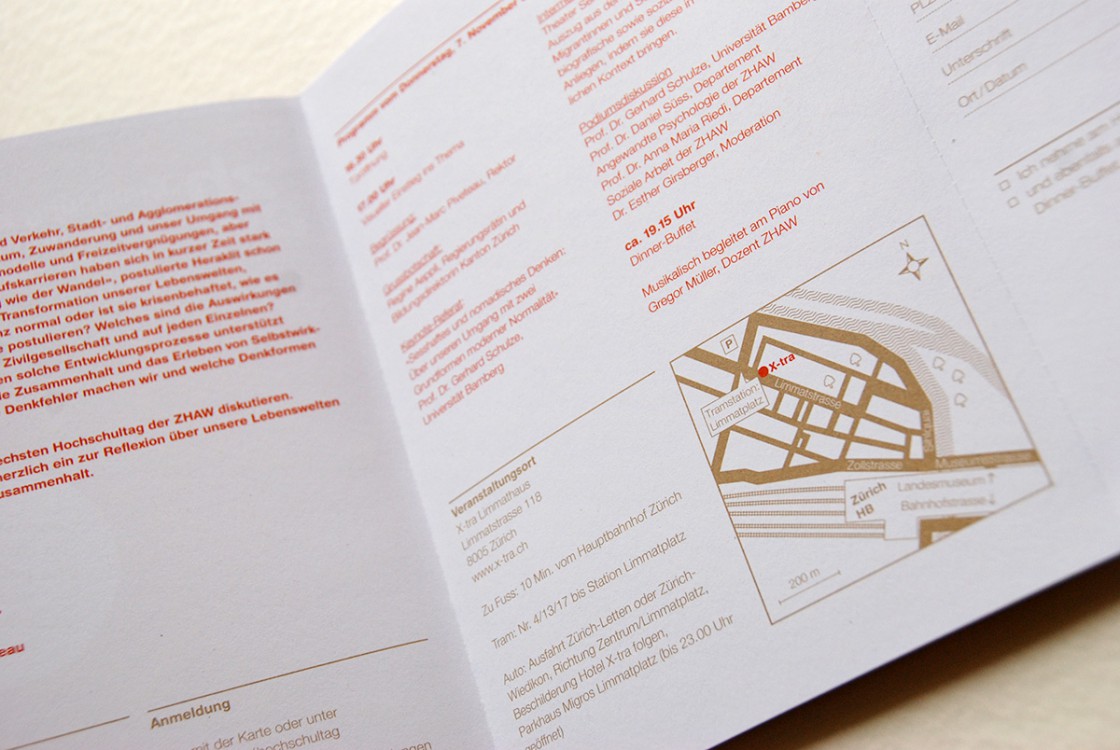 d Verkehr, Stadt- und Agglomerations-
um, Zuwanderung und unser Umgang mit
modelle und Freizeitvergnügungen, aber
ufskarrieren haben sich in kurzer Zeit stark
wie der Wandel», postulierte Heraklit schon
Transformation unserer Lebenswelten,
nz normal oder ist sie krisenbehaftet, wie es
e postulieren? Welches sind die Auswirkungen
Zivilgesellschaft und auf jeden Einzelnen?
en solche Entwicklungsprozesse unterstützt
ie Zusammenhalt und das Erleben von Selbstwirk-
Denkfehler machen wir und welche Denkformen
echsten Hochschultag der ZHAW diskutieren.
herzlich ein zur Reflexion über unsere Lebenswelten
usammenhalt.
eau
Anmeldung
mit der Karte oder unter
hochschultag
Programm vom Donnerstag, 7. November
16.30 Uhr
Eröffnung
17.00 Uhr
Visueller Einstieg ins Thema
Begrüssung:
Prof. Dr. Jean-Marc Piveteau, Rektor
Grussbotschaft:
Regine Aeppli, Regierungsrätin und
Bildungsdirektorin Kanton Zürich
Keynote-Referat:
«Sesshaftes und nomadisches Denken:
Über unseren Umgang mit zwei
Grundformen moderner Normalität»
Prof. Dr. Gerhard Schulze,
Universität Bamberg
Veranstaltungsort
X-tra Limmathaus
Limmatstrasse 118
8005 Zürich
www.x-tra.ch
Zu Fuss: 10 Min. vom Hauptbahnhof Zürich
Tram: Nr. 4/13/17 bis Station Limmatplatz
Auto: Ausfahrt Zürich-Letten oder Zürich-
Wiedikon, Richtung Zentrum/Limmatplatz,
Beschilderung Hotel X-tra folgen,
Parkhaus Migros Limmatplatz (bis 23.00 Uhr
geöffnet)
Theater
Auszug aus de
Migrantinnen und
biografische sowie sozia
Anliegen, indem sie diese in
lichen Kontext bringen.
Podiumsdiskussion
Prof. Dr. Gerhard Schulze, Universität Bamberg
Prof. Dr. Daniel Süss, Departement
Angewandte Psychologie der ZHAW
Prof. Dr. Anna Maria Riedi, Departement
Soziale Arbeit der ZHAW
Dr. Esther Girsberger, Moderation
ca. 19.15 Uhr
Dinner-Buffet
Musikalisch begleitet am Piano von
Gregor Müller, Dozent ZHAW
N
P
X-tra
Tramstation:
Limmatplatz
Limmatstrasse
Sihlquai
Zollstrasse
Museumstrasse
Zürich
HB
Landesmuseum ↑
Bahnhofstrasse ↓
200 m
PLZ
E-Mail
Unterschrift
Ort/Datum
Ich nehme am
und ebenfalls
Dinner-Buffet